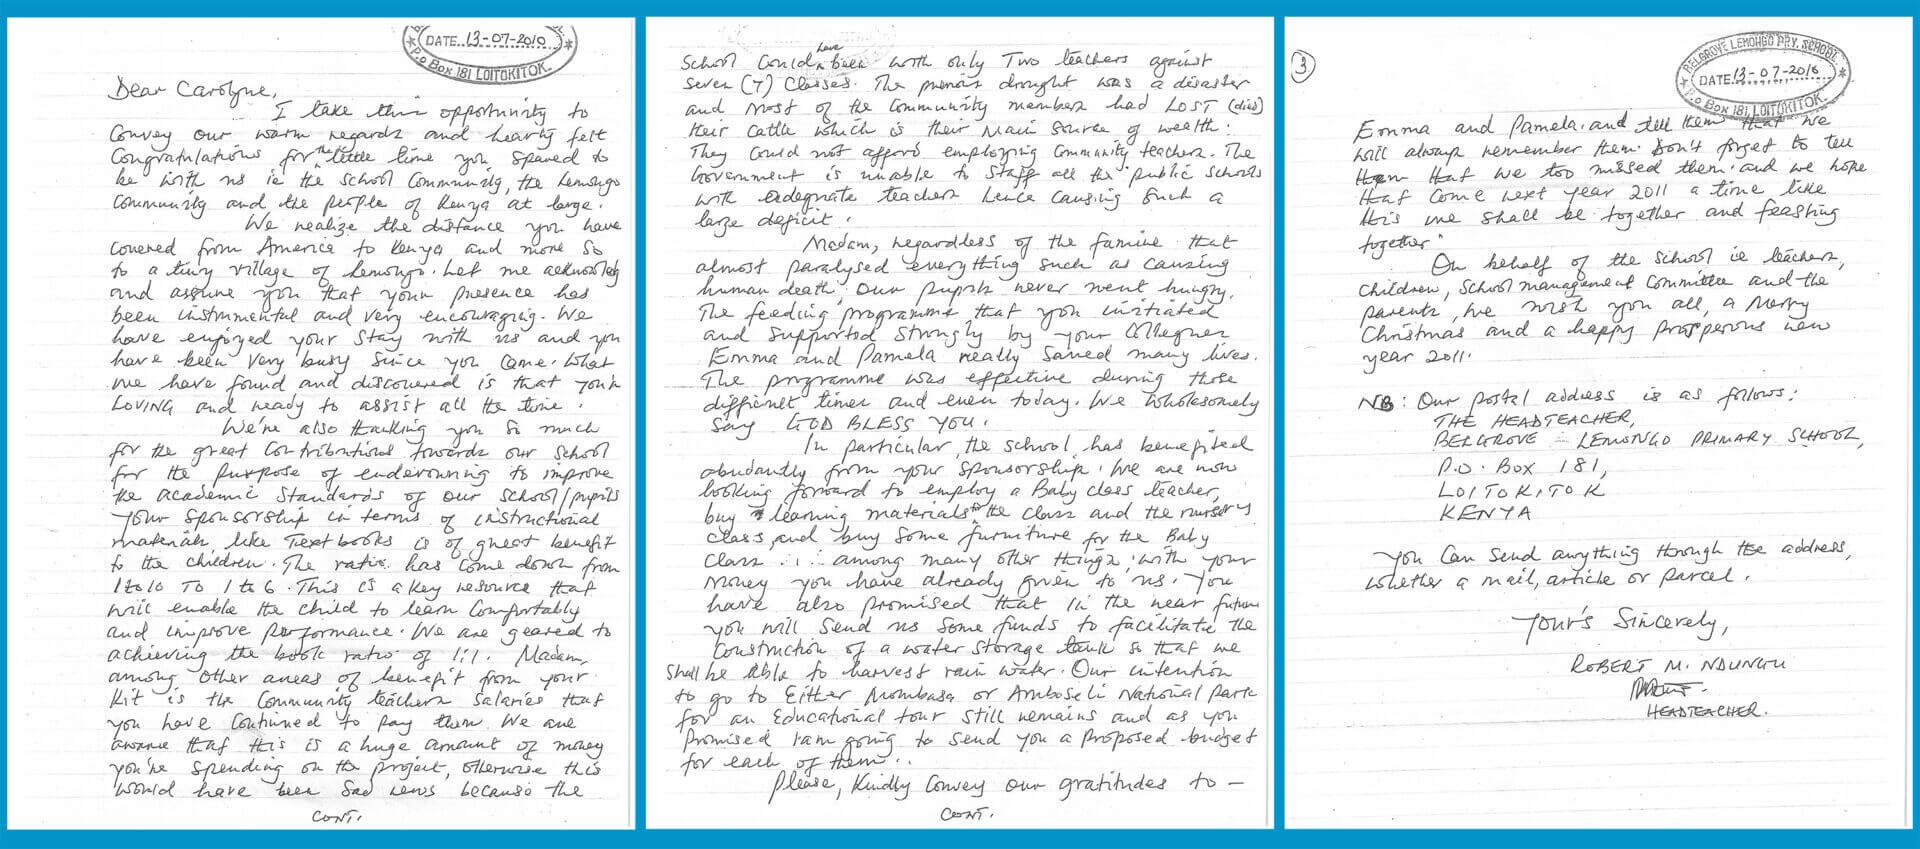 DATE 13-07-2010
P.O Box 181 LOITOKITOK.
Dear Carolyne,
I take this opportunity to
Convey our warm regards and hearty felt
Congratulations for the little time you spared to
be with us ie the School Community, the Lemongo
Community and the people of Kenya at large.
We realize the distance you have
covered from America to Kenya and more so
to a tiny village of Lemongo. Let me acknowledg
and assure you that your presence has
been instrumental and very encouraging. We
have enjoyed your stay with us and you
have been very busy since you came. What
we have found and discovered is that you're
LOVING and ready to assist all the time.
We're also thanking you so much
for the great contributions towards our school
for the purpose of endevouring to improve
the academic standards of our school/pupils
Your sponsorship in terms of instructional
materials like Textbooks is of great benefit
to the children. The ratio has come down from
1 to 10 TO 1 to 6. This is a key resource that
will enable the child to learn comfortably
and improve performance. We are geared to
achieving the book ratio of 1:1. Madam,
among other areas of benefit from your
Kit is the Community teachers salaries that
you have continued to pay them. We are
aware that this is a huge amount of money
you're spending on the project, otherwise this
would have been sad news because the
CONT.
School could have been with only Two teachers against
seven (7) classes. The previous drought was a disaster
and most of the Community members had LOST (died)
their cattle which is their main source of wealth.
They could not afford employing Community teachers. The
Government is unable to staff all the public schools
with adequate teachers hence causing such a
large deficit.
Madam, regardless of the famine that
almost paralysed everything such as causing
human death, our pupils never went hungry.
The feeding programme that you initiated
and supported strongly by your collegues
Emma and Pamela really saved many lives.
The programme was effective during those
difficult times and even today. We wholesomely
say GOD BLESS YOU.
In particular, the school, has benefited
abudantly from your sponsorship. We are now
looking forward to employ a Baby class teacher,
buy learning materials to the class and the nursery
class, and buy some furniture for the Baby
Class ... among many other things, with your
money you have already given to us. You
have also promised that in the near future
you will send us some funds to facilitate the
construction of a water storage tank so that we
shall be able to harvest rain water. Our intention
to go to Either Mombasa or Amboseli National Park
for an Educational tour still remains and as you
promised I am going to send you a proposed budget
for each of them..
Please, kindly convey our gratitudes to -
CONT.
3
BELGROVE LEMONGO PRY. SCHOOL
DATE 13-07-2010
P.O Box 181, LOITOKITOK.
Emma and Pamela. and tell them that we
will always remember them. Don't forget to tell
them that we too missed them. and we hope
that come next year 2011 a time like
this we shall be together and feasting
together"
On behalf of the school ie teachers,
children, School management Committee and the
parents, we wish you all, a Merry
Christmas and a happy prosperous new
year 2011.
NB: Our postal address is as follows:
THE HEADTEACHER,
BELGROVE LEMONGO PRIMARY SCHOOL,
P.O. BOX 181,
LOITOKITOK
KENYA
You can send anything through the address,
whether a mail, article or parcel.
Your's Sincerely,
ROBERT M. NDUNGU
HEADTEACHER.